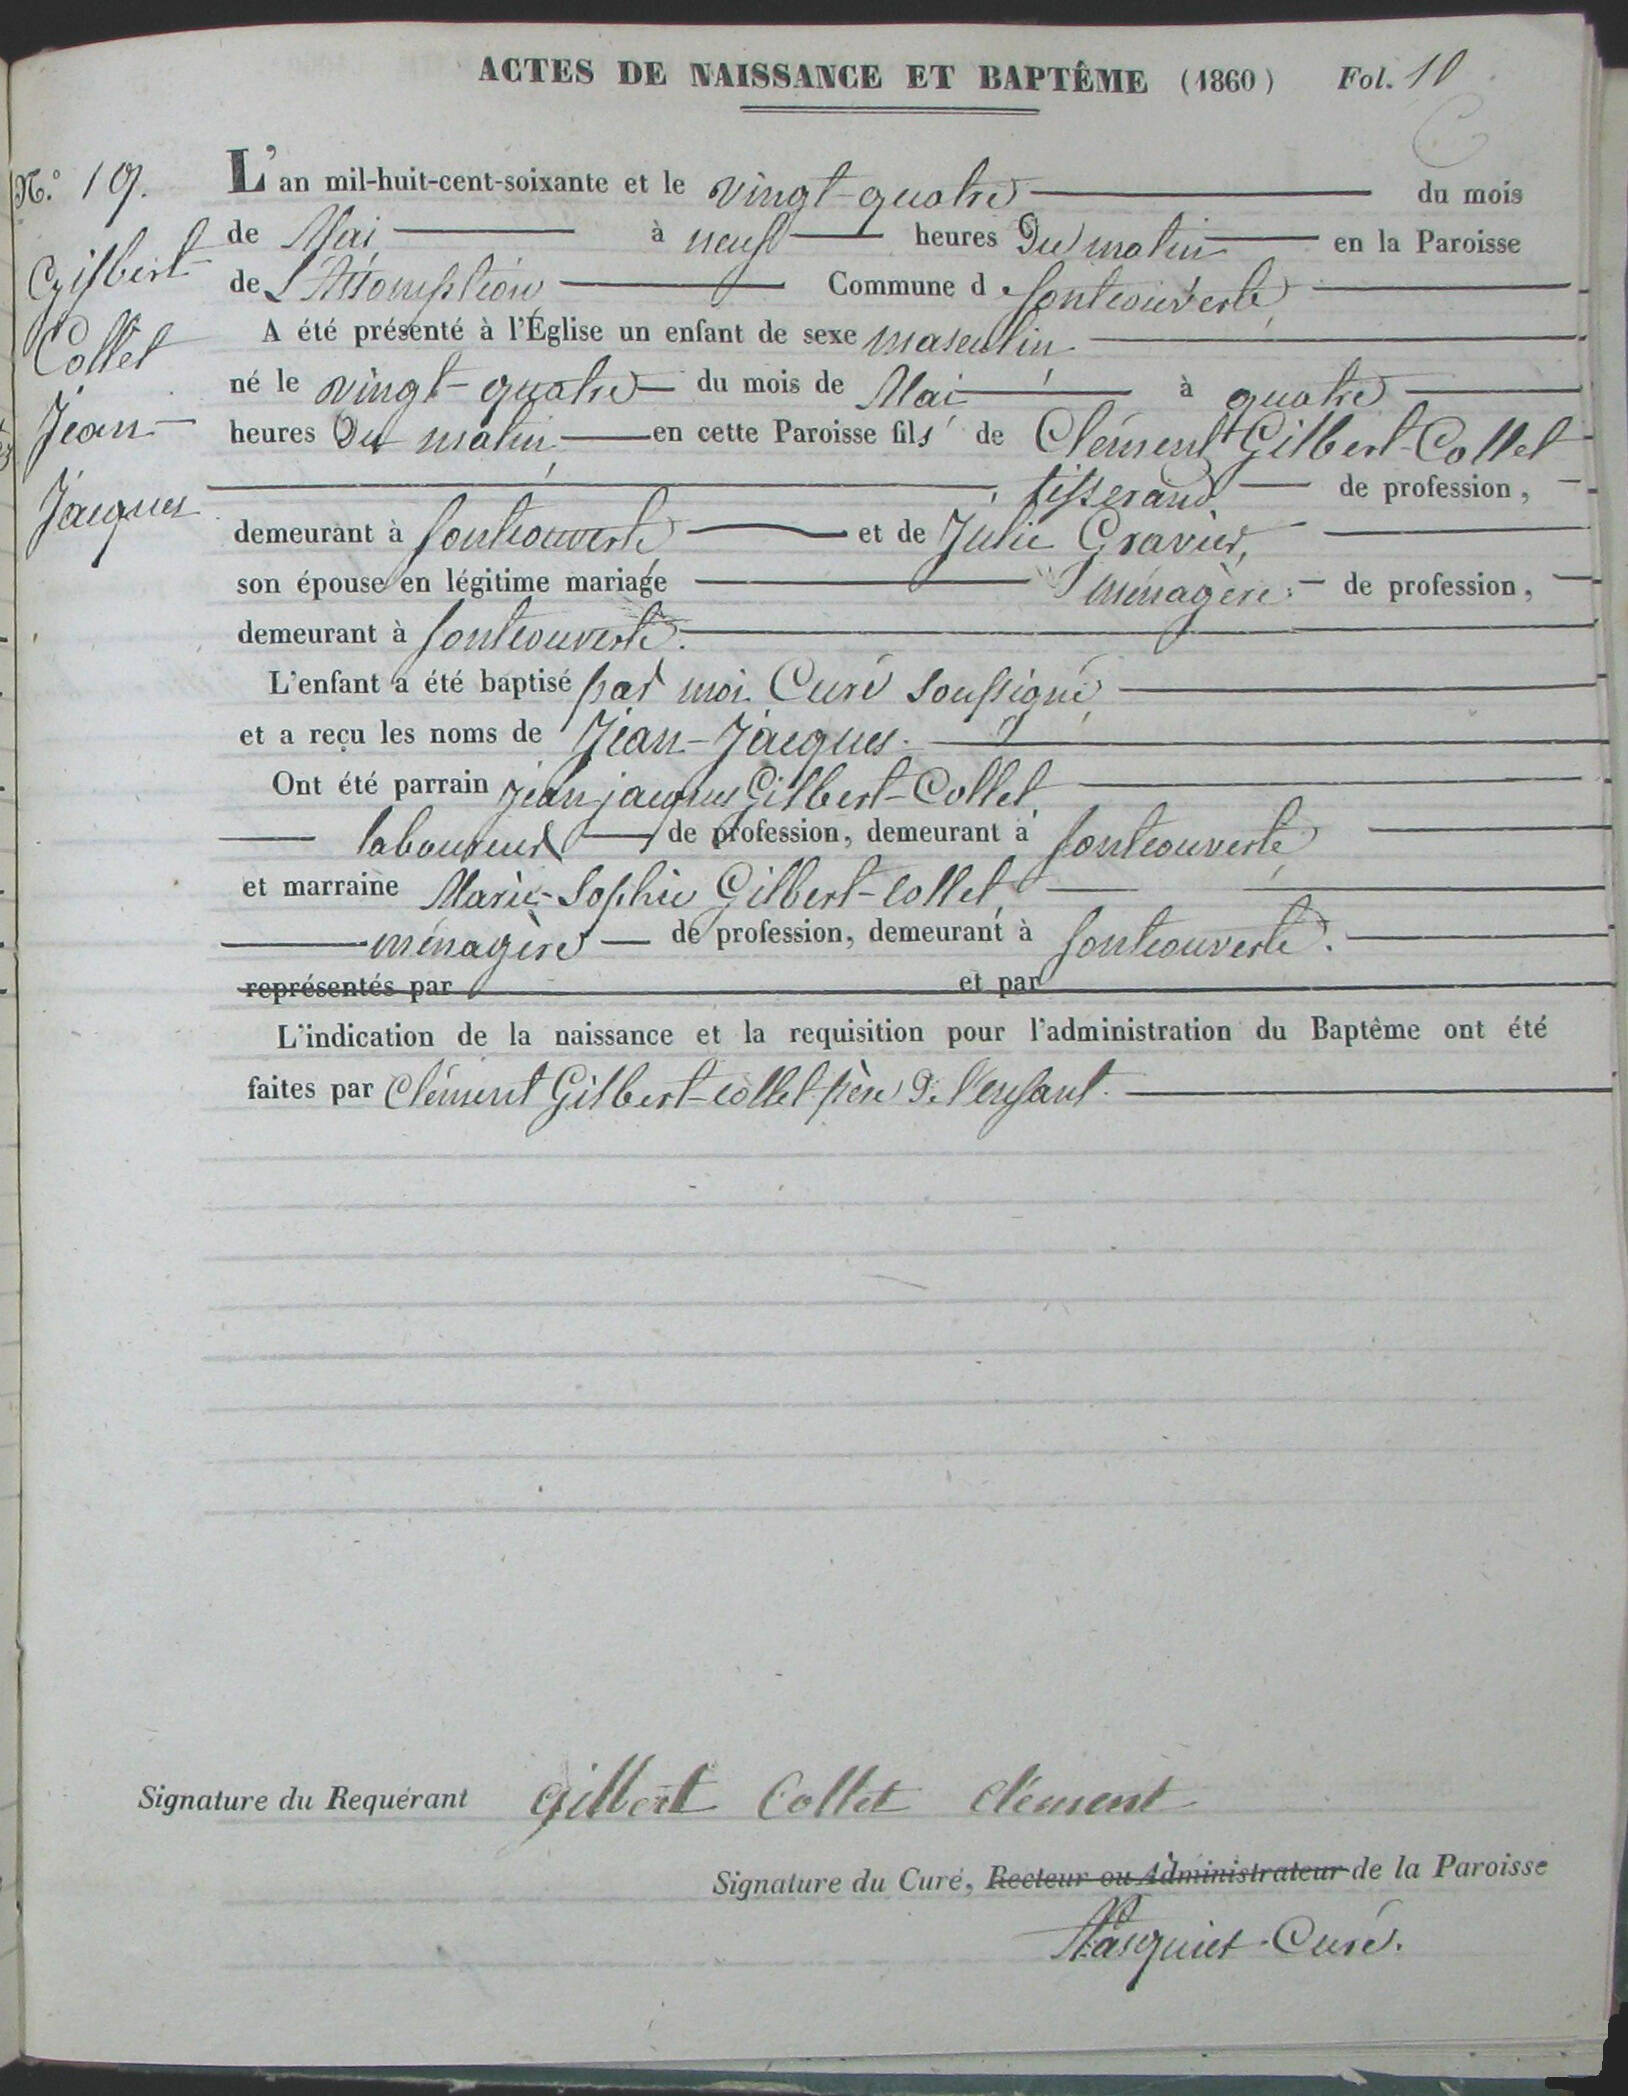 ACTES DE NAISSANCE ET BAPTÊME (1860) Fol. 10
N.º 19.
Gilbert
Collet
Jean
Jacques
L'an mil-huit-cent-soixante et le vingt-quatre du mois
de Mai à neuf heures Du matin en la Paroisse
de L'Assomption Commune d fontcouverte
A été présenté à l'Église un enfant de sexe masculin
né le vingt-quatre du mois de Mai à quatre
heures Du matin en cette Paroisse fils de Clément Gilbert-Collet
tisserand de profession,
demeurant à fontcouverte et de Julie Gravier,
son épouse en légitime mariage ménagère de profession,
demeurant à fontcouverte.
L'enfant a été baptisé par moi Curé soussigné
et a reçu les noms de Jean-Jacques.
Ont été parrain jean jacques Gilbert-Collet
laboureur de profession, demeurant à fontcouverte
et marraine Marie-Sophie Gilbert-collet,
ménagère de profession, demeurant à fontcouverte.
représentés par et par
L'indication de la naissance et la requisition pour l'administration du Baptême ont été
faites par Clément Gilbert-collet père De l'enfant.
Signature du Requérant gilbert Collet clément
Signature du Curé, Recteur ou Administrateur de la Paroisse
Curé.